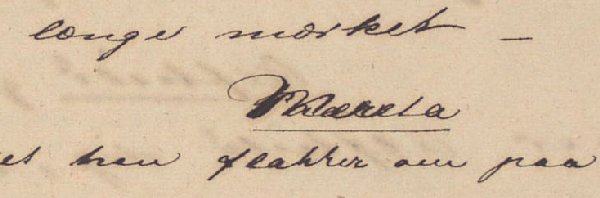 længe mørket —
Mærela
et hen flakker om paa